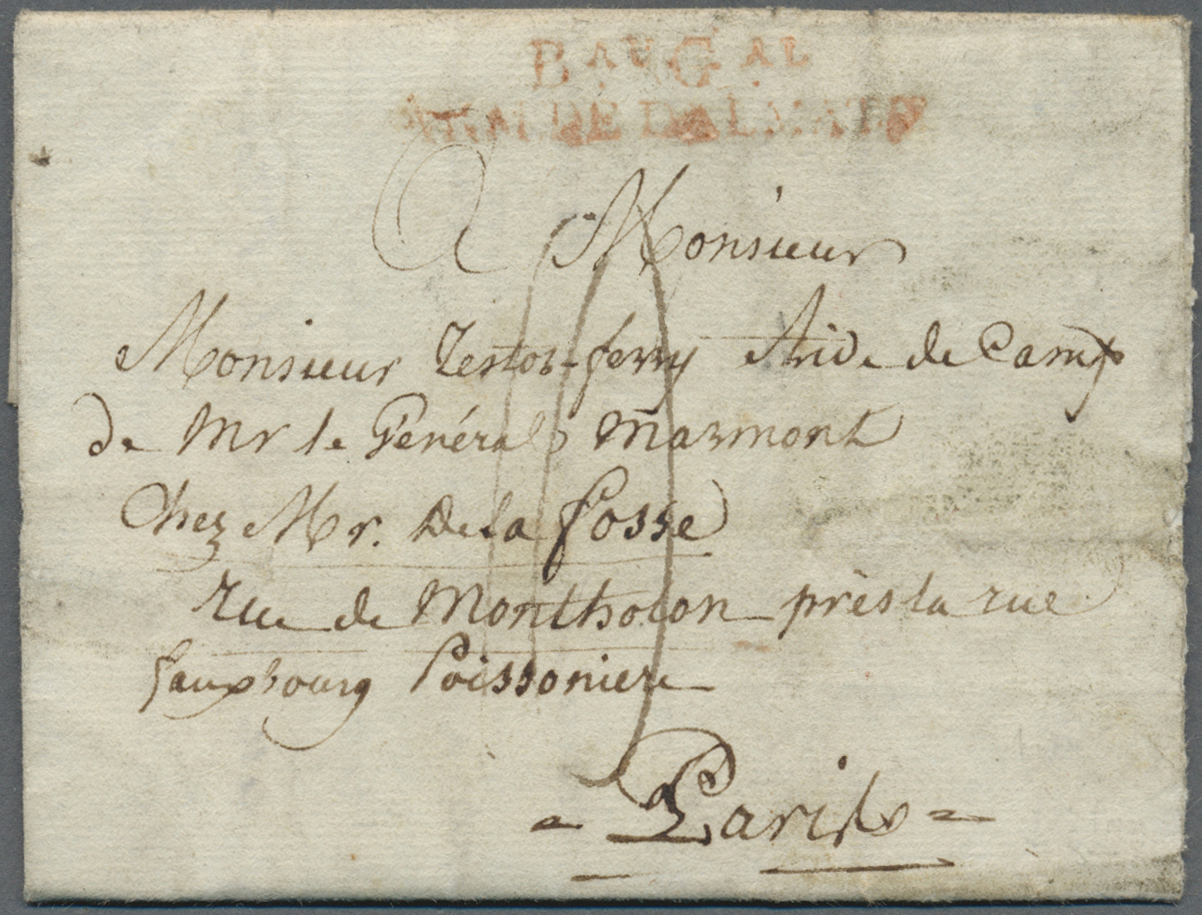 BAU GAL
ARM. DE DALMATIE
A Monsieur
Monsieur Testot-ferry Aide de Camp
de Mr le Général Marmont
Chez Mr. De la fosse
rue de Montholon près la rue
fauxbourg Poissoniere
- Paris -